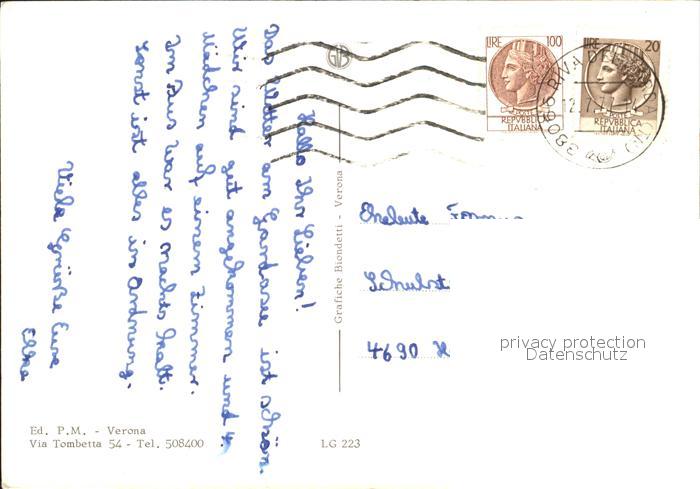 Hallo Ihr Lieben!
Das Wetter am Gardasee ist schön.
Wir sind gut angekommen und 4
Mädchen auf einem Zimmer.
Im Bus war es nachts kalt.
Sonst ist alles in Ordnung.
Viele Grüße Eure
Elke
LIRE 100
REPVBBLICA
ITALIANA
LIRE 20
REPVBBLICA
ITALIANA
38066 RIVA DEL
(TN)
Eheleute
Schulst
4690 H
Grafiche Biondetti - Verona
privacy protection
Datenschutz
Ed. P.M. - Verona
Via Tombetta 54 - Tel. 508400
LG 223